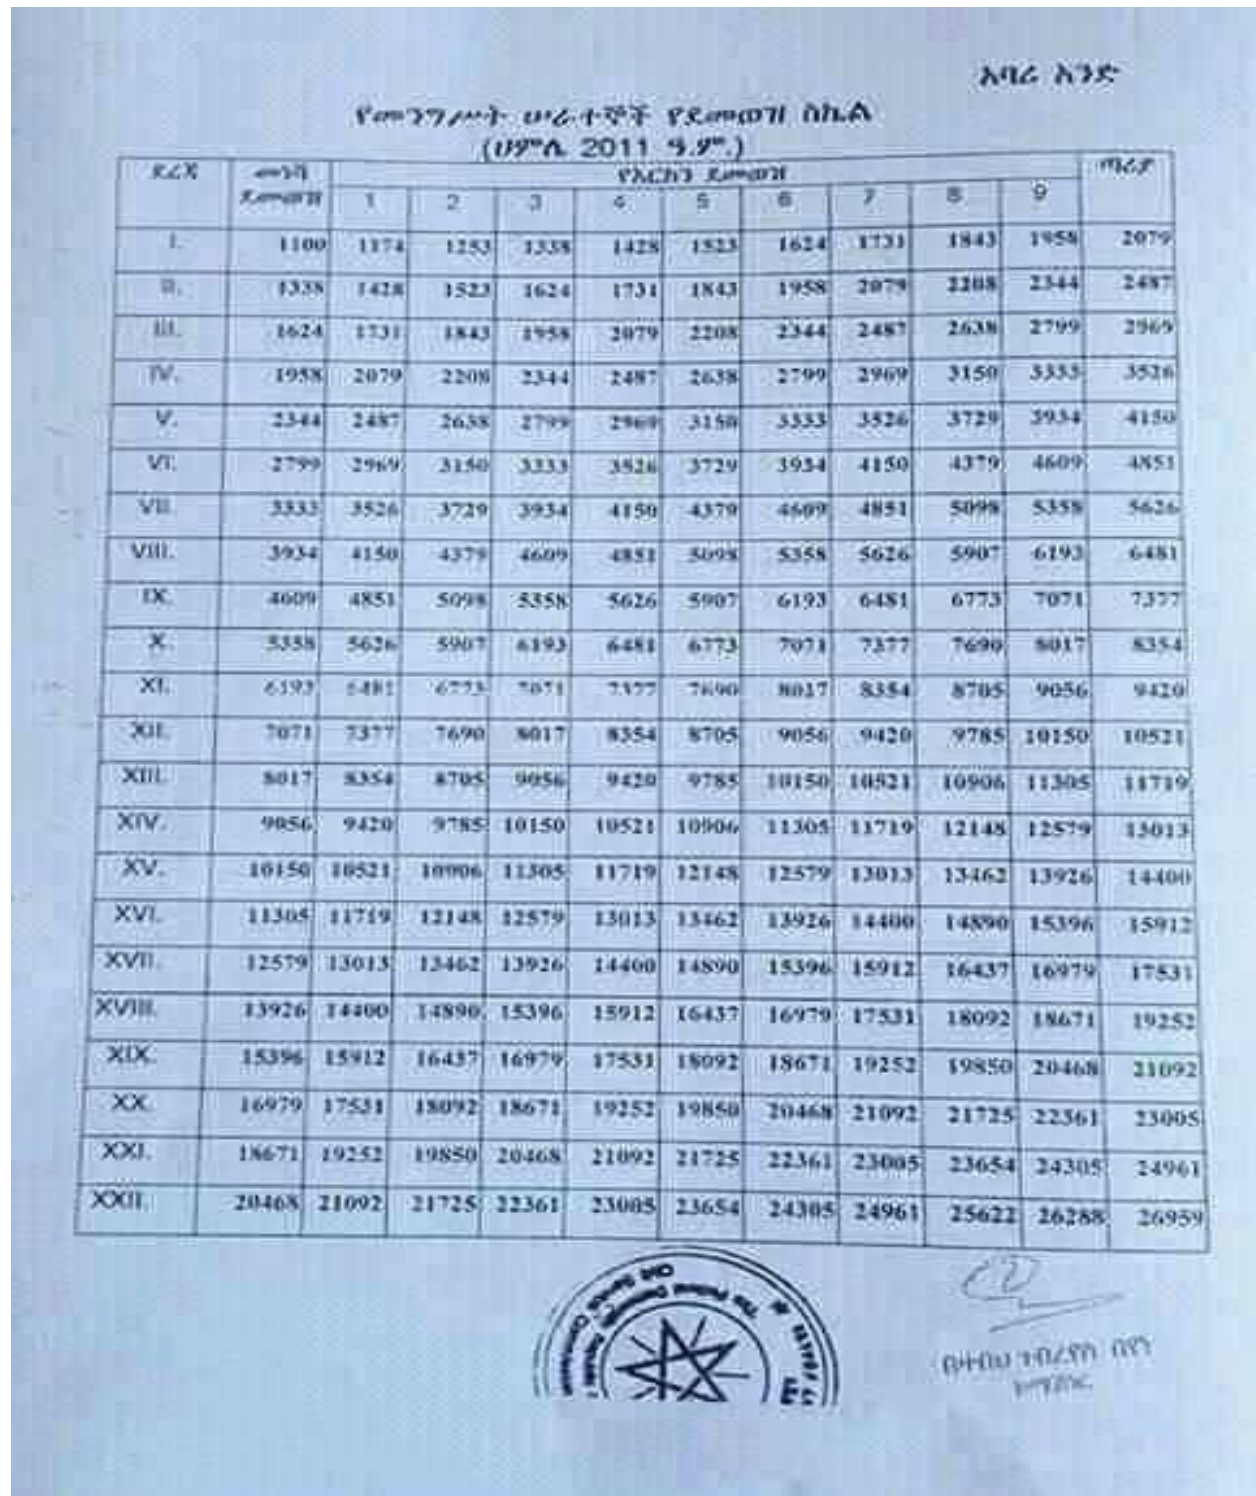 አባሪ አንድ
የመንግሥት ሠራተኞች የደመወዝ ስኬል
(ሀምሌ 2011 ዓ.ም.)
ደረጃ መነሻ ደመወዝ የእርከን ደመወዝ ጣሪያ
1 2 3 4 5 6 7 8 9
I. 1100 1174 1253 1338 1428 1523 1624 1731 1843 1958 2079
II. 1338 1428 1523 1624 1731 1843 1958 2079 2208 2344 2487
III. 1624 1731 1843 1958 2079 2208 2344 2487 2638 2799 2969
IV. 1958 2079 2208 2344 2487 2638 2799 2969 3150 3333 3526
V. 2344 2487 2638 2799 2969 3150 3333 3526 3729 3934 4150
VI. 2799 2969 3150 3333 3526 3729 3934 4150 4379 4609 4851
VII. 3333 3526 3729 3934 4150 4379 4609 4851 5098 5358 5626
VIII. 3934 4150 4379 4609 4851 5098 5358 5626 5907 6193 6481
IX. 4609 4851 5098 5358 5626 5907 6193 6481 6773 7071 7377
X. 5358 5626 5907 6193 6481 6773 7071 7377 7690 8017 8354
XI. 6193 6481 6773 7071 7377 7690 8017 8354 8705 9056 9420
XII. 7071 7377 7690 8017 8354 8705 9056 9420 9785 10150 10521
XIII. 8017 8354 8705 9056 9420 9785 10150 10521 10906 11305 11719
XIV. 9056 9420 9785 10150 10521 10906 11305 11719 12148 12579 13013
XV. 10150 10521 10906 11305 11719 12148 12579 13013 13462 13926 14400
XVI. 11305 11719 12148 12579 13013 13462 13926 14400 14890 15396 15912
XVII. 12579 13013 13462 13926 14400 14890 15396 15912 16437 16979 17531
XVIII. 13926 14400 14890 15396 15912 16437 16979 17531 18092 18671 19252
XIX. 15396 15912 16437 16979 17531 18092 18671 19252 19850 20468 21092
XX. 16979 17531 18092 18671 19252 19850 20468 21092 21725 22361 23005
XXI. 18671 19252 19850 20468 21092 21725 22361 23005 23654 24305 24961
XXII. 20468 21092 21725 22361 23005 23654 24305 24961 25622 26288 26959
The Federal Democratic
Civil Service Commission